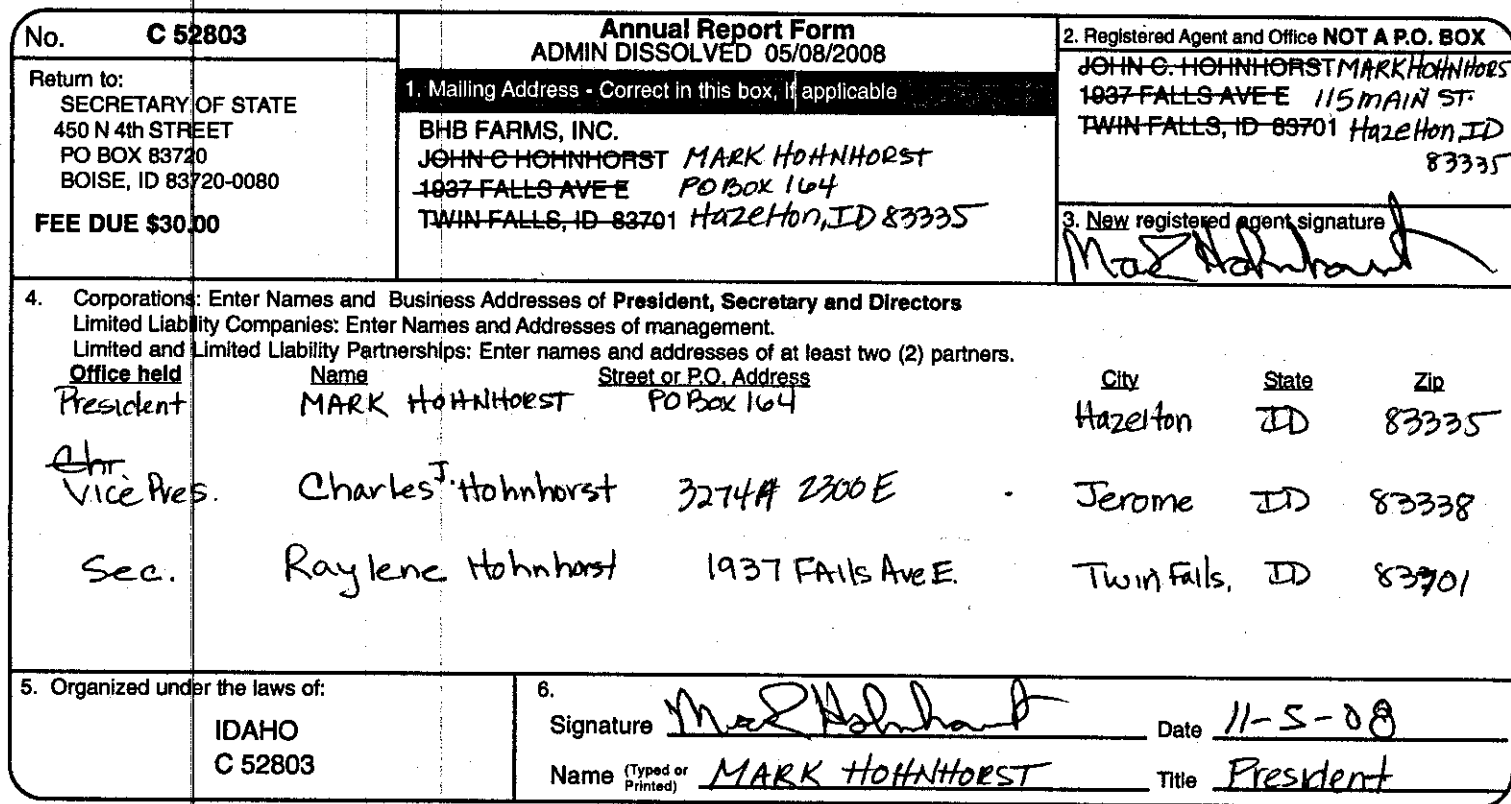 No. C 52803
Annual Report Form
ADMIN DISSOLVED 05/08/2008
Return to:
SECRETARY OF STATE
450 N 4th STREET
PO BOX 83720
BOISE, ID 83720-0080
FEE DUE $30.00
1. Mailing Address - Correct in this box, if applicable
BHB FARMS, INC.
JOHN C HOHNHORST MARK HOHNHORST
1937 FALLS AVE E PO BOX 164
TWIN FALLS, ID 83701 Hazelton, ID 83335
2. Registered Agent and Office NOT A P.O. BOX
JOHN C. HOHNHORST MARK HOHNHORS
1937 FALLS AVE E 115 MAIN ST.
TWIN FALLS, ID 83701 Hazelton, ID
83335
3. New registered agent signature
Mark Hohnhorst
4. Corporations: Enter Names and Business Addresses of President, Secretary and Directors
Limited Liability Companies: Enter Names and Addresses of management.
Limited and Limited Liability Partnerships: Enter names and addresses of at least two (2) partners.
Office held Name Street or P.O. Address City State Zip
President MARK HOHNHORST PO Box 164 Hazelton ID 83335
Chr
Vice Pres. Charles J. Hohnhorst 2300 E Jerome ID 83338
Sec. Raylene Hohnhorst 1937 FAlls Ave E. Twin Falls, ID 83701
5. Organized under the laws of:
IDAHO
C 52803
6.
Signature Mark Hohnhorst Date 11-5-08
Name (Typed or Printed) MARK HOHNHORST Title President